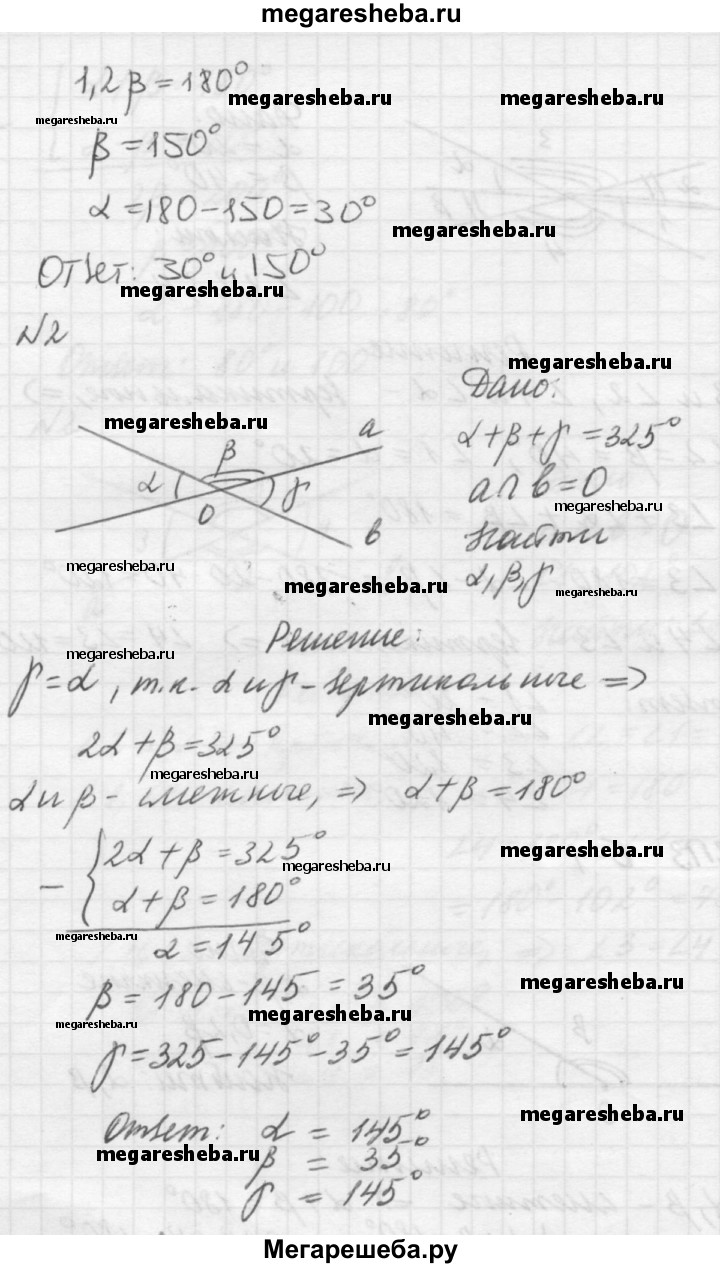 megaresheba.ru
1,2 β = 180°
megaresheba.ru megaresheba.ru
megaresheba.ru
β = 150°
α = 180 - 150 = 30°
megaresheba.ru
Ответ: 30° и 150°
megaresheba.ru
№2
megaresheba.ru
Дано:
megaresheba.ru
α + β + γ = 325°
a
β
α
γ
a ∩ b = 0
megaresheba.ru
O
b
Найти
megaresheba.ru
megaresheba.ru
α, β, γ
megaresheba.ru
Решение:
megaresheba.ru
γ = α, т.к. α и γ - вертикальные =>
megaresheba.ru
2α + β = 325°
megaresheba.ru
α и β - смежные, => α + β = 180°
2α + β = 325°
megaresheba.ru megaresheba.ru
- { α + β = 180°
megaresheba.ru
α = 145°
β = 180 - 145 = 35°
megaresheba.ru
megaresheba.ru megaresheba.ru
γ = 325 - 145° - 35° = 145°
megaresheba.ru
Ответ: α = 145°
megaresheba.ru
β = 35°
γ = 145°
Мегарешеба.ру